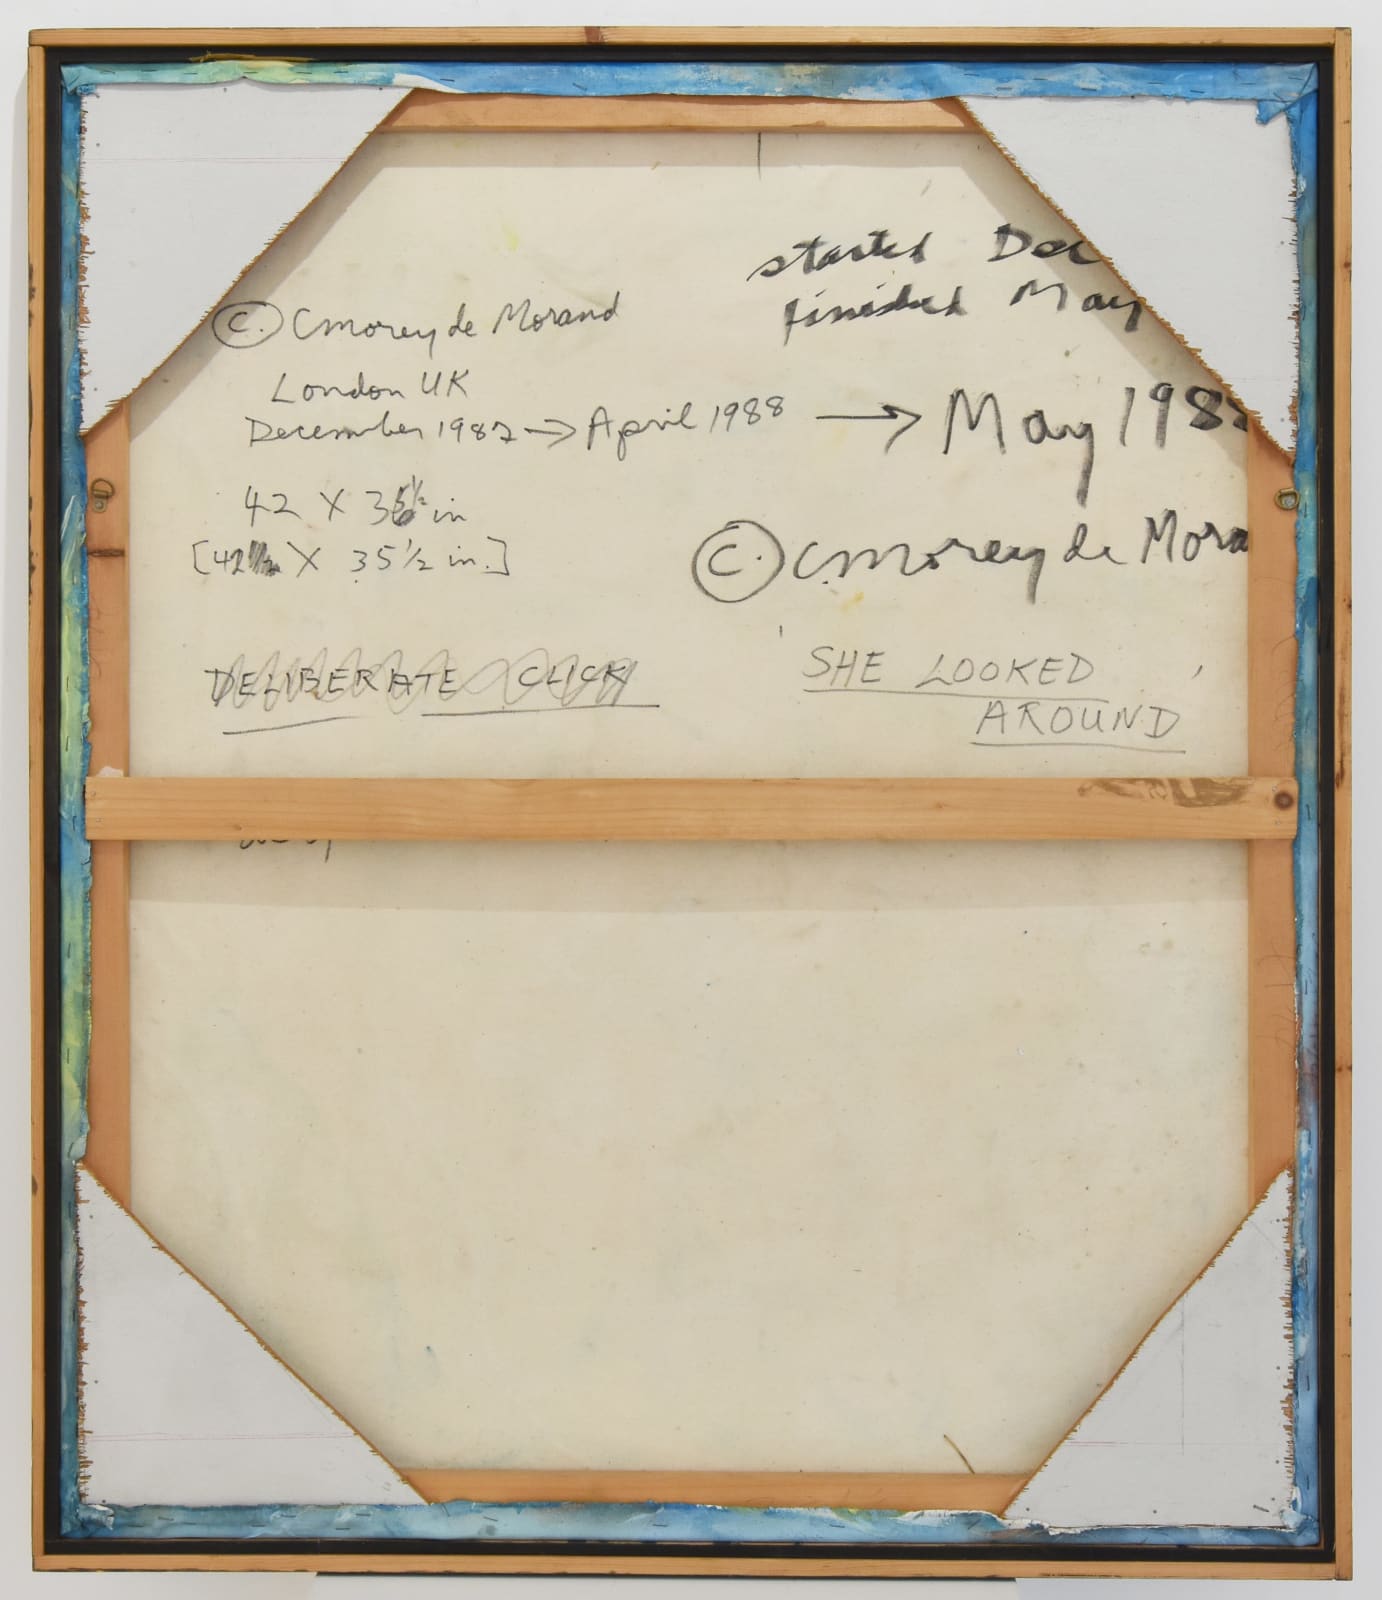 started Dec
finished May
©. Cmorey de Morand
London UK
December 1987 → April 1988 → May 1988
42 X 35 1/2 in
[42 X 35 1/2 in.]
©. Cmorey de Mora
DELIBERATE CLICK
SHE LOOKED
AROUND